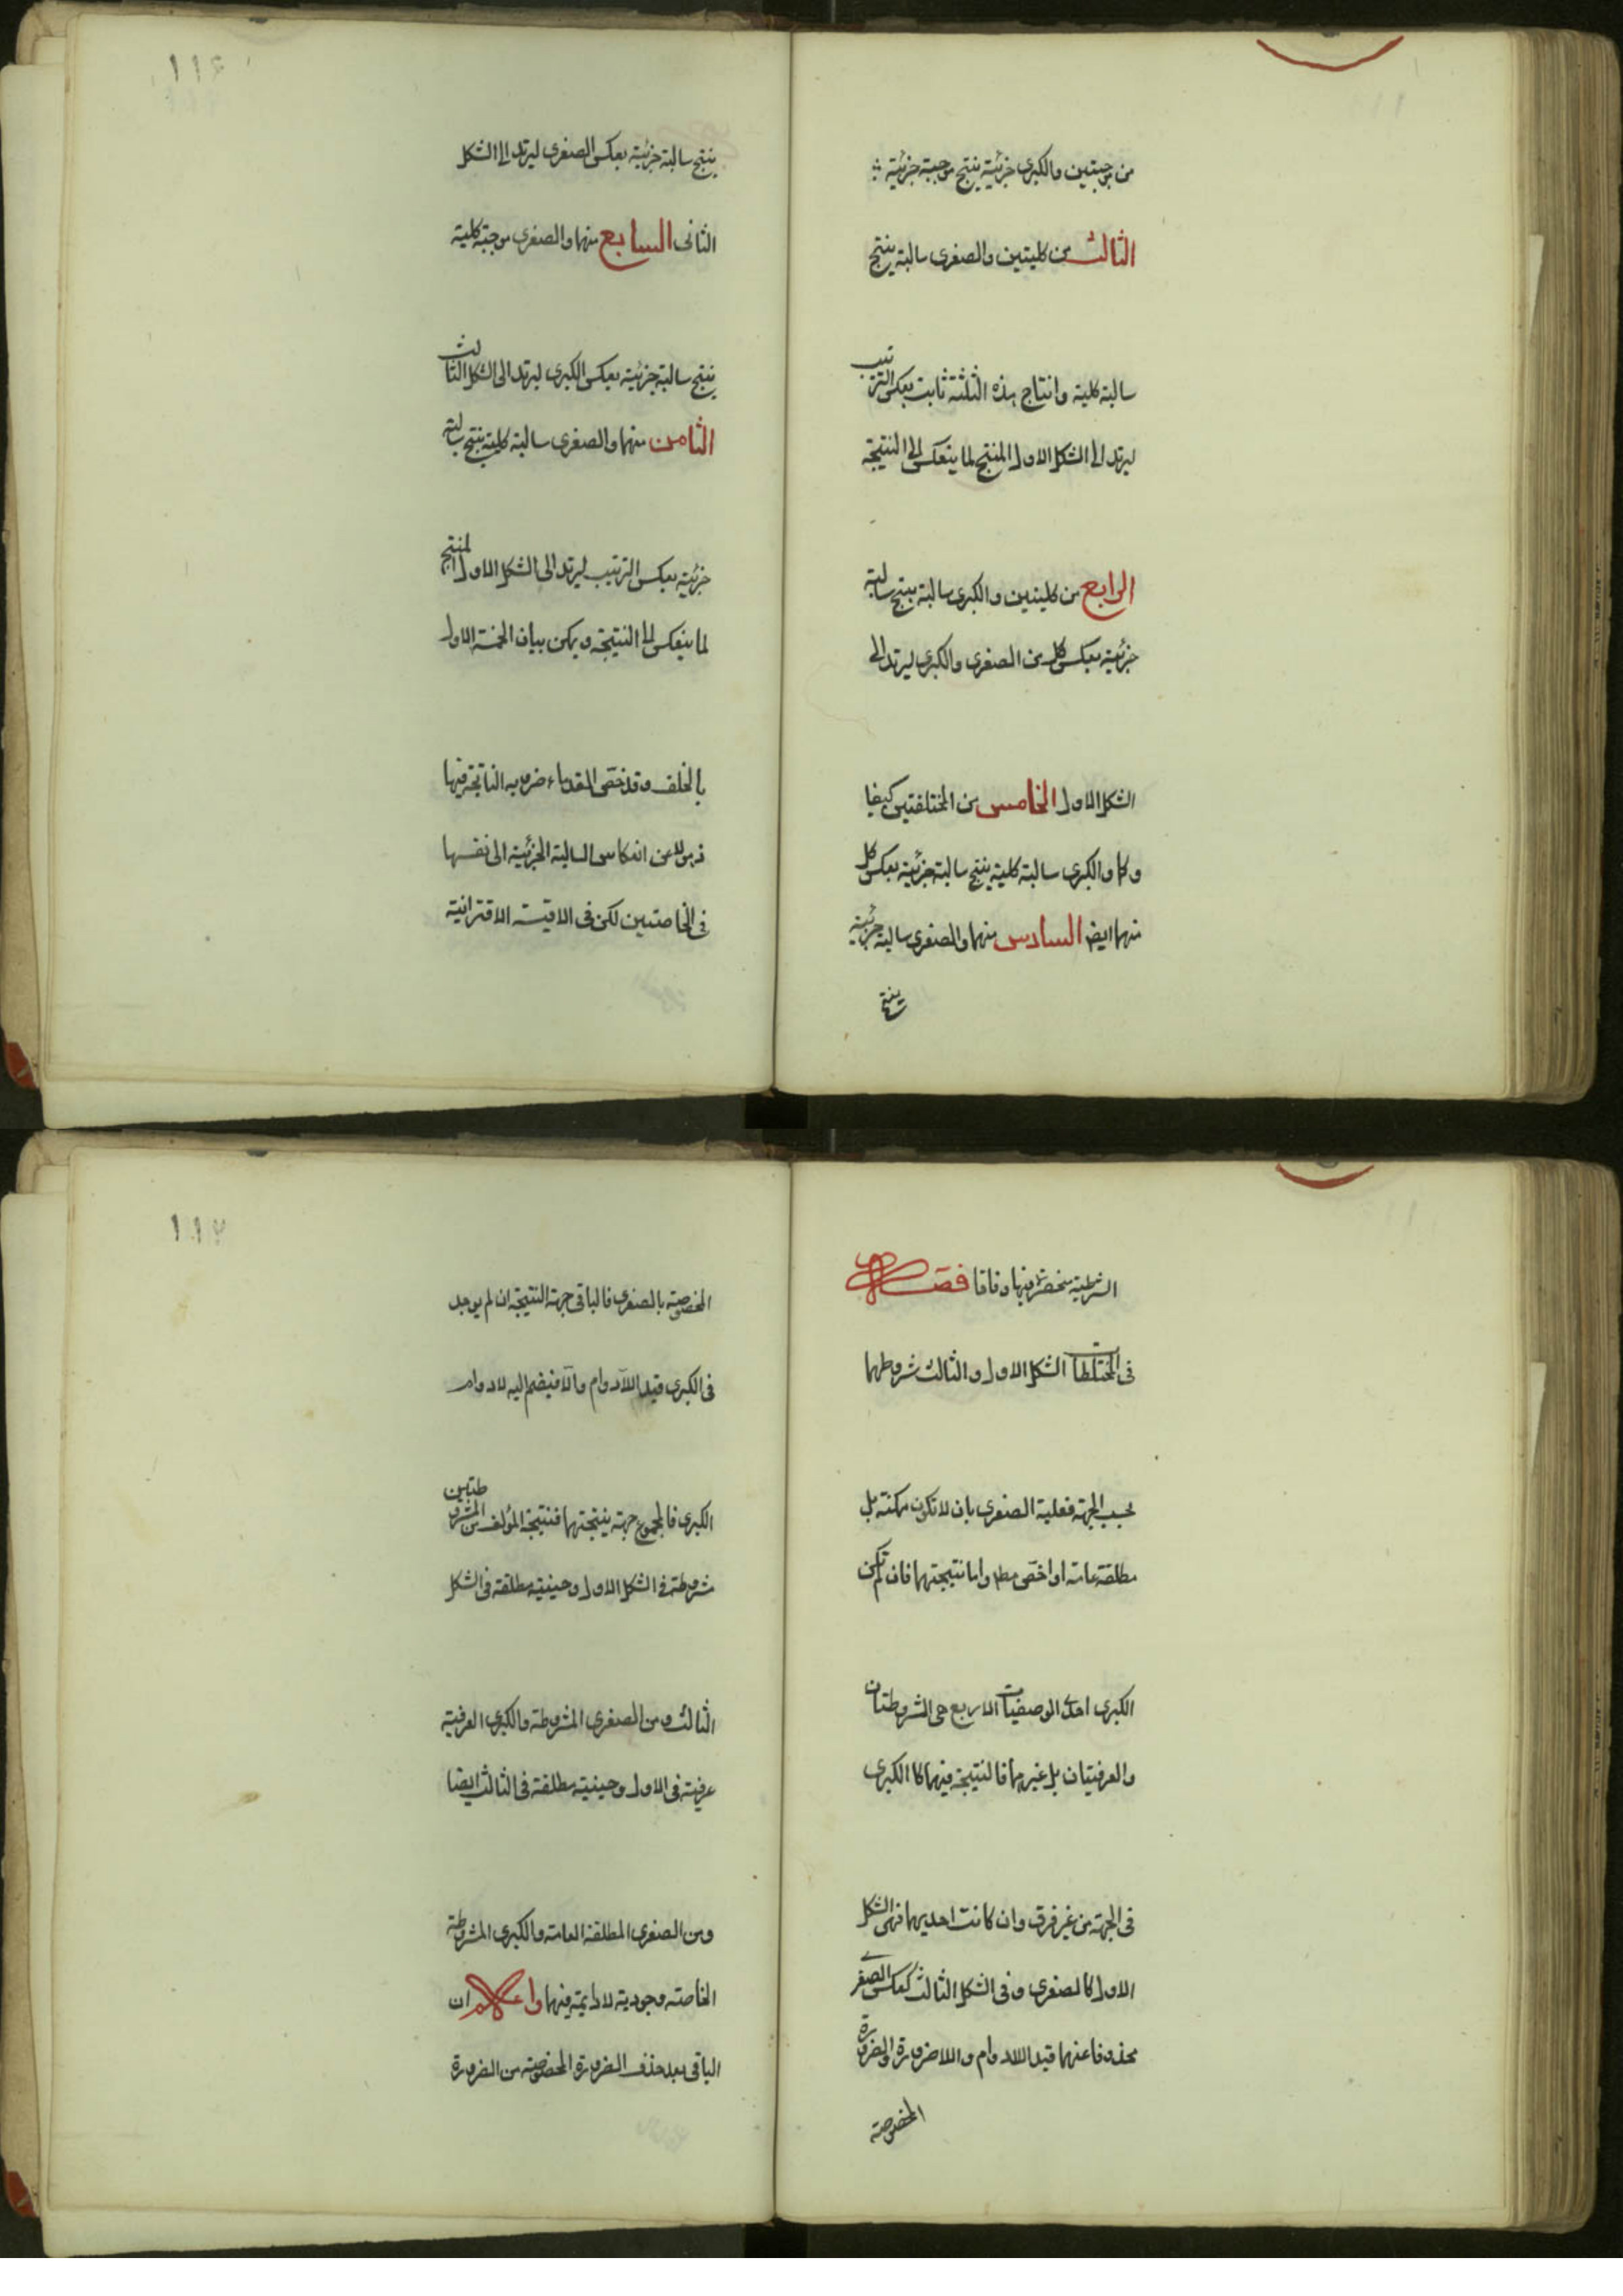 من موجبتين والكبرى جزئية ينتج موجبة جزئية
الثالث من كليتين والصغرى سالبة ينتج
سالبة كلية وانتاج هذه الثلثة ثابت بعكس الترتيب
ليرتد الى الشكل الاول المنتج لما ينعكس الى النتيجة
الرابع من كليتين والكبرى سالبة ينتج سالبة
جزئية بعكس كل من الصغرى والكبرى ليرتد الى
الشكل الاول الخامس من المختلفتين كيفا
وكما والكبرى سالبة كلية ينتج سالبة جزئية بعكس كل
منهما ايضا السادس منهما والصغرى سالبة جزئية
ينتج
١١٦
ينتج سالبة جزئية بعكس الصغرى ليرتد الى الشكل
الثانى السابع منهما والصغرى موجبة كلية
ينتج سالبة جزئية بعكس الكبرى ليرتد الى الشكل الثالث
الثامن منهما والصغرى سالبة كلية ينتج سالبة
جزئية بعكس الترتيب ليرتد الى الشكل الاول المنتج
لما ينعكس الى النتيجة ويمكن بيان الخمسة الاول
بالخلف وقد خص القدماء ضروبه الناتجة فيها
ذهولا عن انعكاس السالبة الجزئية الى نفسها
فى الخاصتين لكن فى الاقيسة الاقترانية
الشرطية منحصرة فيها وفاقا فصل
فى المختلطات الشكل الاول والثالث شروطهما
بحسب الجهة فعلية الصغرى بان لا تكون ممكنة بل
مطلقة عامة او اخص مط واما نتيجتهما فان لم تكن
الكبرى احدى الوصفيات الاربع هى المشروطتان
والعرفيتان بل غيرها فالنتيجة فيهما كالكبرى
فى الجهة من غير فرق وان كانت احديها فهى الشكل
الاول كالصغرى وفى الشكل الثالث كعكس الصغرى
محذوفا عنهما قيد اللادوام واللاضرورة والضرورة
المخصوصة
١١٧
المخصوصة بالصغرى فالباقى جهة النتيجة ان لم يوجد
فى الكبرى قيد اللادوام والا فيضم اليه لادوام
الكبرى فالمجموع جهة نتيجتهما فنتيجة المؤلف من المشروطتين
مشروطة فى الشكل الاول وحينية مطلقة فى الشكل
الثالث ومن الصغرى المشروطة والكبرى العرفية
عرفية فى الاول وحينية مطلقة فى الثالث ايضا
ومن الصغرى المطلقة العامة والكبرى المشروطة
الخاصة وجودية لادائمة فيهما واعلم ان
الباقى بعد حذف الضرورة المخصوصة من الضرورة